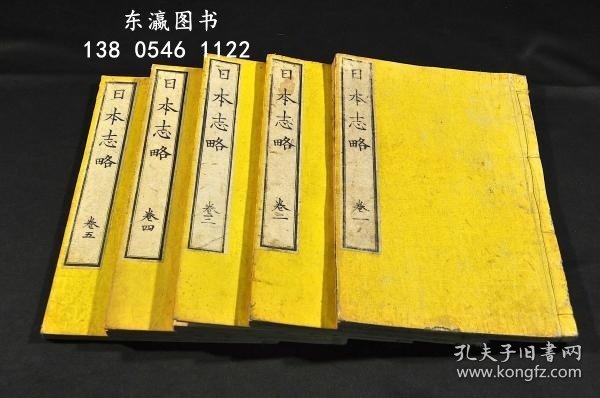 东瀛图书
138 0546 1122
日本志略
卷五
日本志略
卷四
日本志略
卷三
日本志略
卷二
日本志略
卷一
孔夫子旧书网
www.kongfz.com